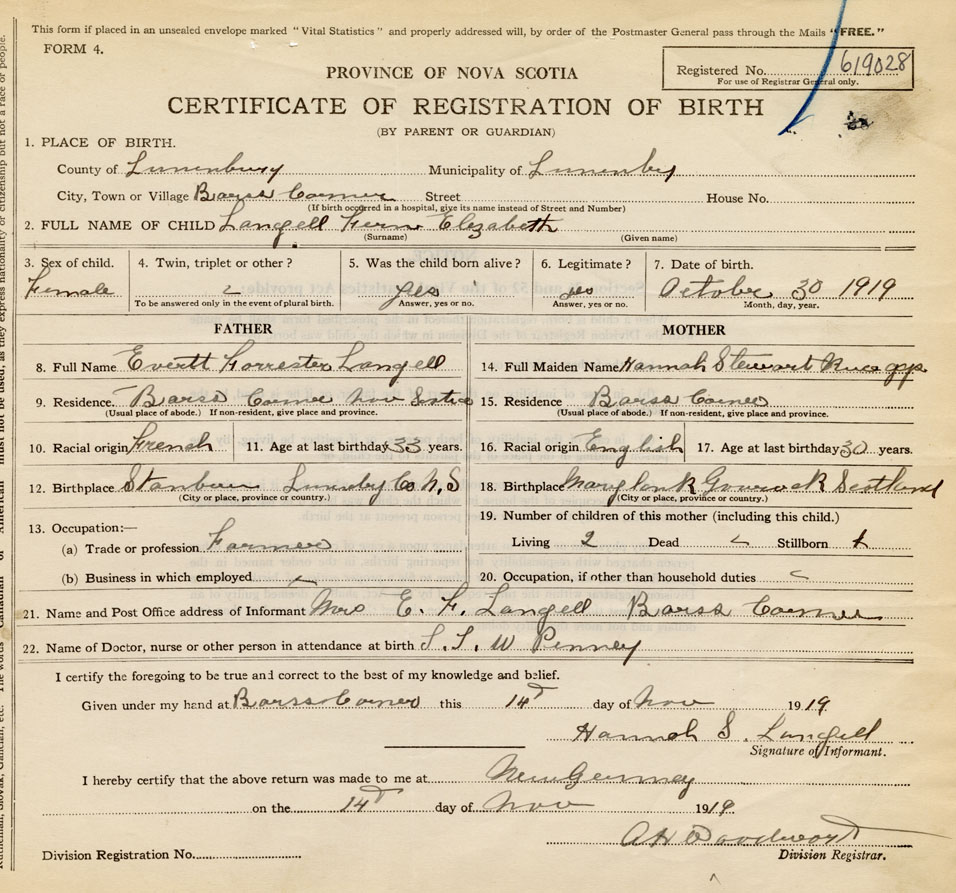 This form if placed in an unsealed envelope marked "Vital Statistics" and properly addressed will, by order of the Postmaster General pass through the Mails "FREE."
FORM 4.
Registered No. 619028
For use of Registrar General only.
PROVINCE OF NOVA SCOTIA
CERTIFICATE OF REGISTRATION OF BIRTH
(BY PARENT OR GUARDIAN)
1. PLACE OF BIRTH.
County of Lunenburg Municipality of Lunenbg
City, Town or Village Barss Corner Street House No.
(If birth occurred in a hospital, give its name instead of Street and Number)
2. FULL NAME OF CHILD Langell Fern Elezabeth
(Surname) (Given name)
3. Sex of child. 4. Twin, triplet or other? 5. Was the child born alive? 6. Legitimate? 7. Date of birth.
Female yes yes October 30 1919
To be answered only in the event of plural birth. Answer, yes or no. Answer, yes or no. Month, day, year.
FATHER MOTHER
8. Full Name Evertt Forrester Langell 14. Full Maiden Name Hannah Stewart
9. Residence. Barss Corner Nov Scotia 15. Residence Barss Corner
(Usual place of abode.) If non-resident, give place and province. (Usual place of abode.) If non-resident, give place and province.
10. Racial origin French 11. Age at last birthday 33 years. 16. Racial origin English 17. Age at last birthday 30 years.
12. Birthplace Co N,S 18. Birthplace Scotland
(City or place, province or country.) (City or place, province or country.)
13. Occupation:— 19. Number of children of this mother (including this child.)
(a) Trade or profession Farmer Living 2 Dead Stillborn
(b) Business in which employed 20. Occupation, if other than household duties
21. Name and Post Office address of Informant Mrs E. F. Langell Barss Corner
22. Name of Doctor, nurse or other person in attendance at birth W Penney
I certify the foregoing to be true and correct to the best of my knowledge and belief.
Given under my hand at Barss Corner this 14 day of Nov 1919.
Hannah S. Langell
Signature of Informant.
I hereby certify that the above return was made to me at New Germany
on the 14 day of Nov 1919.
Division Registration No. Division Registrar.